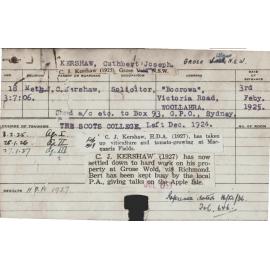 KERSHAW, Cuthbert Joseph.
C. J. Kershaw, Grose Wold, N.S.W.
18 Meth. J.C. Kershaw, Solicitor, "Boorowa", 3rd
3:7:06. Victoria Road, Feby.
WOOLLAHRA. 1925.
Send a/c etc. to Box 93, G.P.O., Sydney.
THE SCOTS COLLEGE, Left Dec. 1924.
C. J. Kershaw, H.D.A. (1927), has taken
up viticulture and tomato-growing at Mac-
quarie Fields.
C. J. KERSHAW (1927) has now
settled down to hard work on his pro-
perty at Grose Wold, via Richmond.
Bert has been kept busy by the local
P.A., giving talks on the Apple Isle.
RESULTS H.D.A 1927.